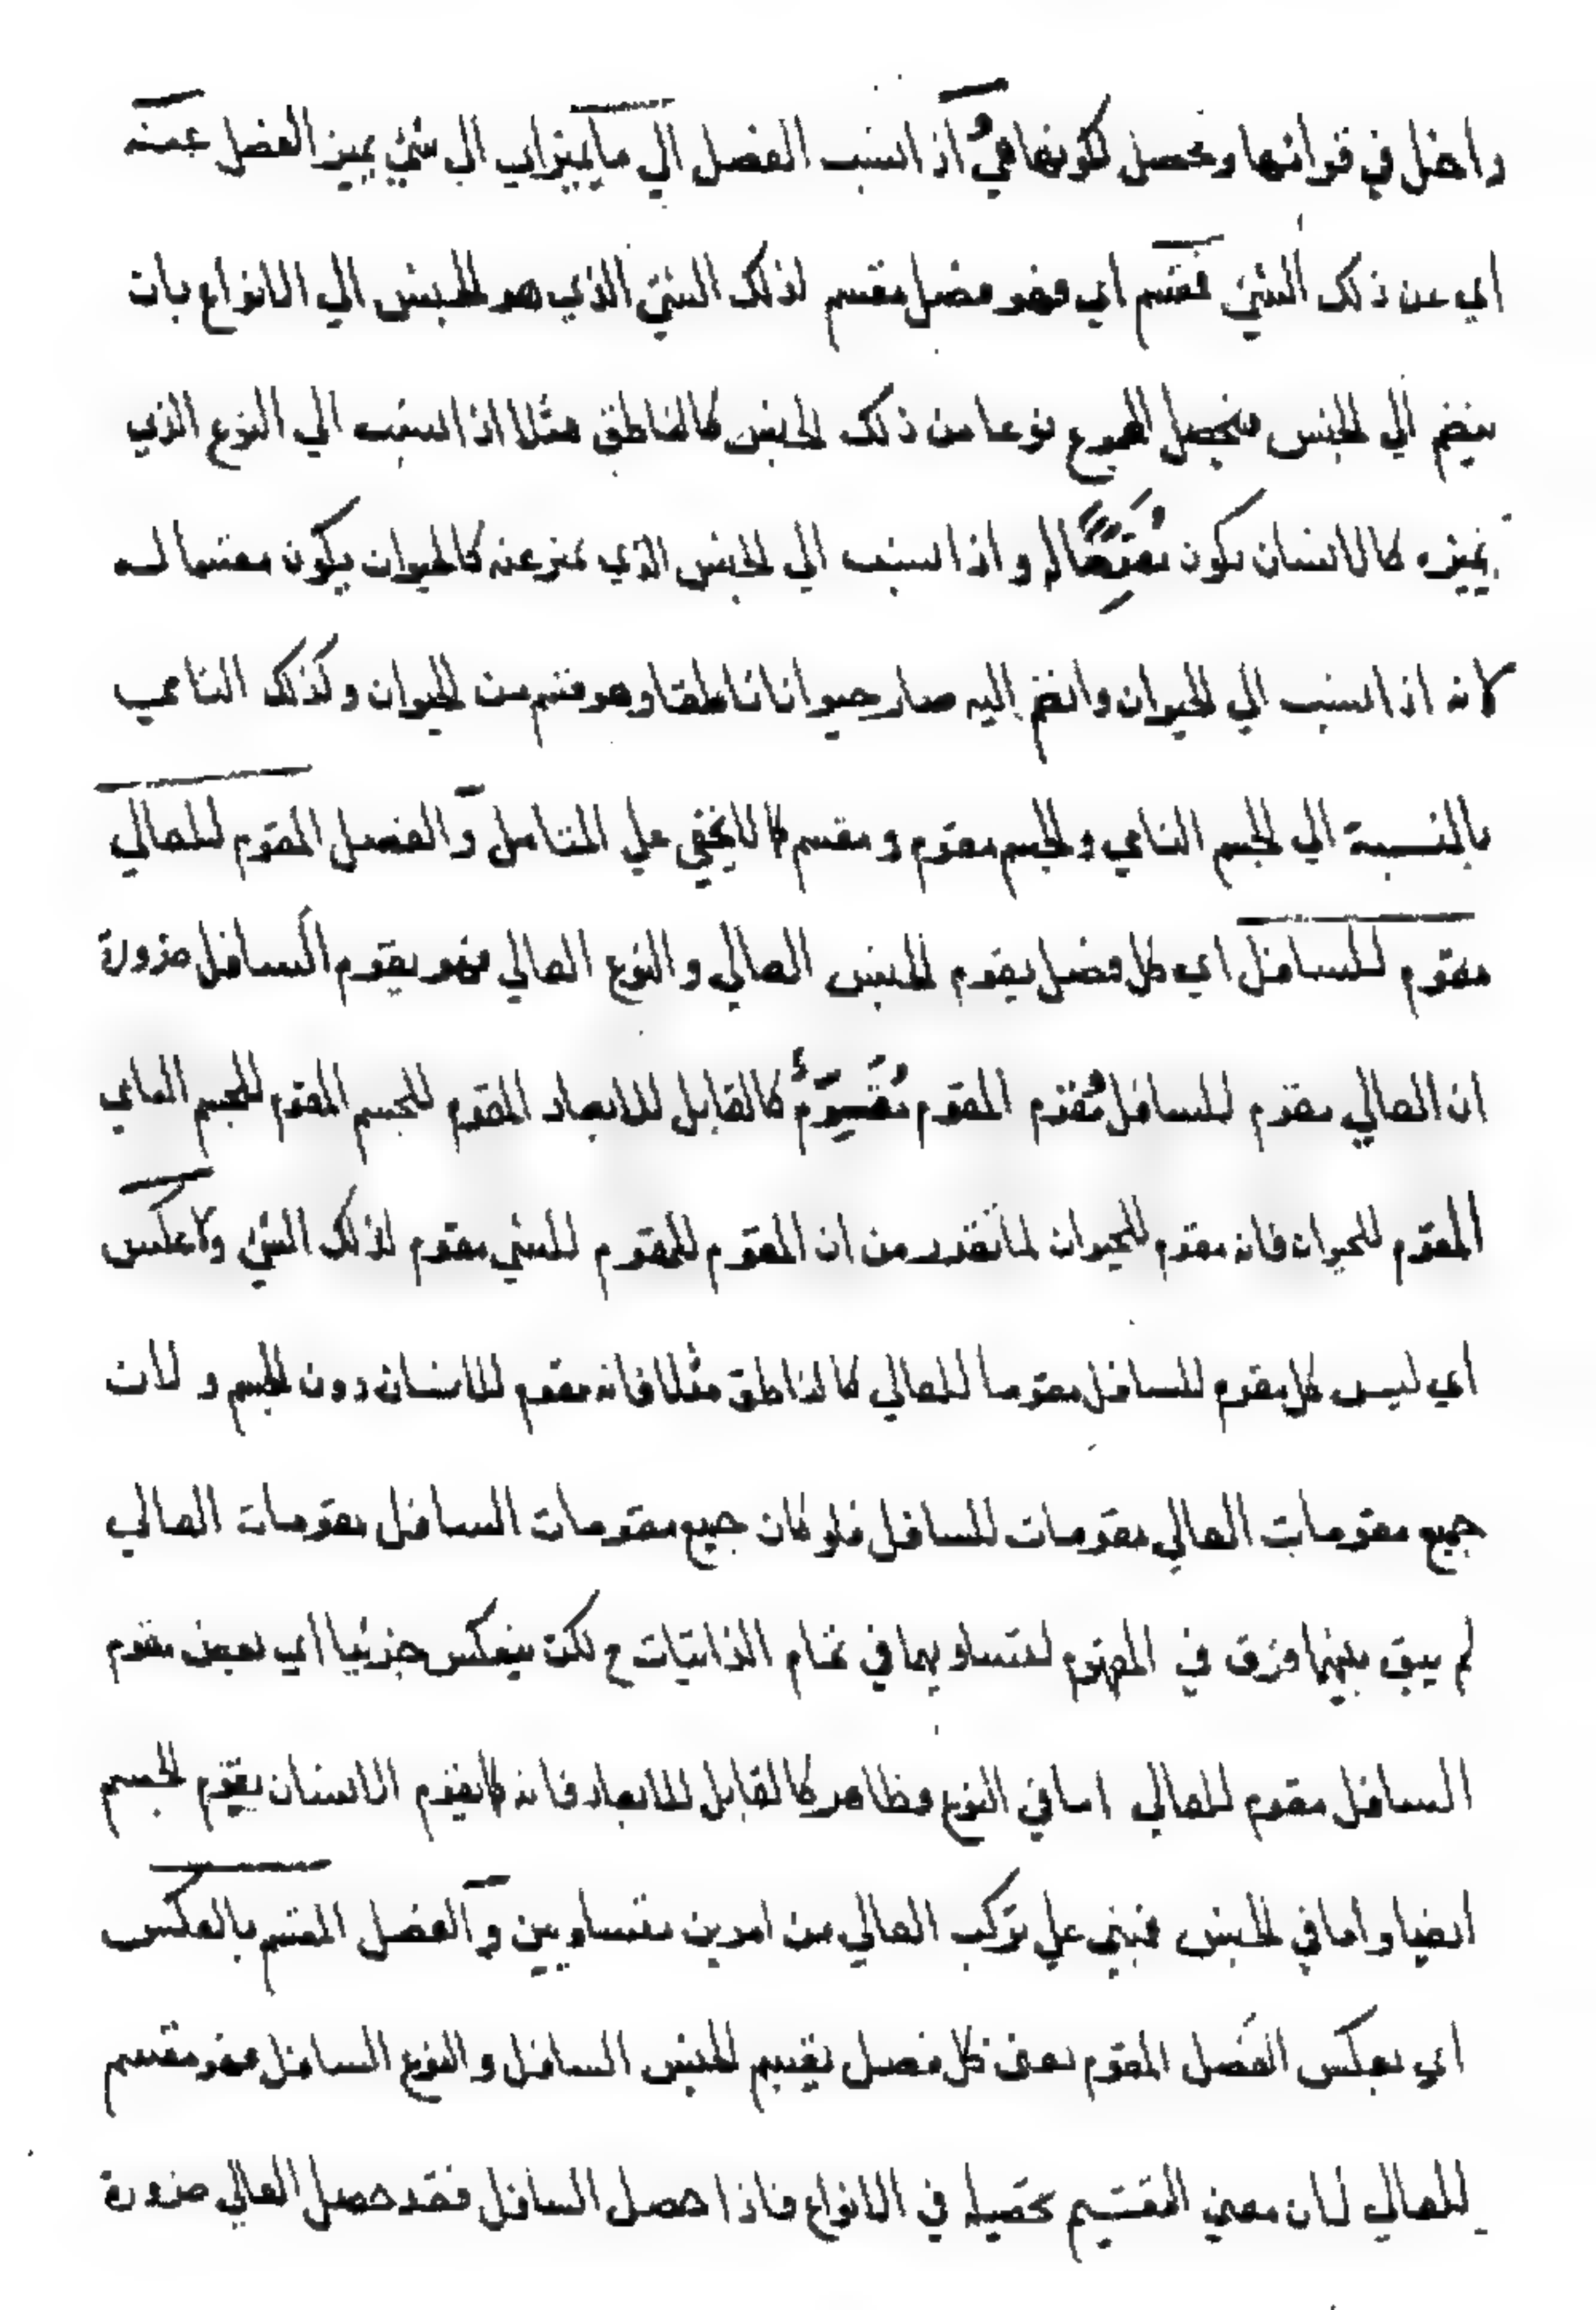 داخل في قوامها ومحصل لكونها هي اذ انسب الفصل الي ما يميزاي الي شيء يميز الفصل عنه
اي عن ذلك الشيء فمقسم اي فهو فصل مقسم لذلك الشيء الذي هو الجنس الي الانواع بان
ينضم الي الجنس فيحصل المجموع نوعا من ذلك الجنس كالناطق مثلا اذا نسب الي النوع الذي
يميزه كالانسان يكون مقوما له واذا نسب الي الجنس الذي يميز عنه كالحيوان يكون مقسما له
لانه اذا نسب الي الحيوان وانضم اليه صار حيوانا ناطقا وهو قسم من الحيوان وكذلك النامي
بالنسبة الي الجسم النامي والجسم مقوم ومقسم كما لا يخفي علي المتامل والفصل المقوم للعالي
مقوم للسافل اي كل فصل يقوم الجنس العالي والنوع العالي فهو يقوم السافل ضرورة
ان العالي مقوم للسافل مقوم المقوم مقوم كالقابل للابعاد المقوم للجسم المقوم للجسم النامي
المقوم للحيوان فانه مقوم للحيوان لما تقرر من ان المقوم للمقوم للشيء مقوم لذلك الشيء ولا عكس
اي ليس كل مقوم للسافل مقوما للعالي كالناطق مثلا فانه مقوم للانسان دون الجسم ولان
جميع مقومات العالي مقومات للسافل فلو كان جميع مقومات السافل مقومات العالي
لم يبق بينهما فرق في المفهوم لتساويهما في تمام الذاتيات ح لكن ينعكس جزئيا اي بعض مقوم
السافل مقوم للعالي اما في النوع فظاهر كالقابل للابعاد فانه كما يقوم الانسان يقوم الجسم
ايضا واما في الجنس فبني علي تركب العالي من امرين متساويين والفصل المقسم بالعكس
اي بعكس الفصل المقوم يعني كل فصل يقسم الجنس السافل والنوع السافل فهو مقسم
للعالي لان معني التقسيم تحصيله في الانواع فاذا حصل السافل فقد حصل العالي ضرورة